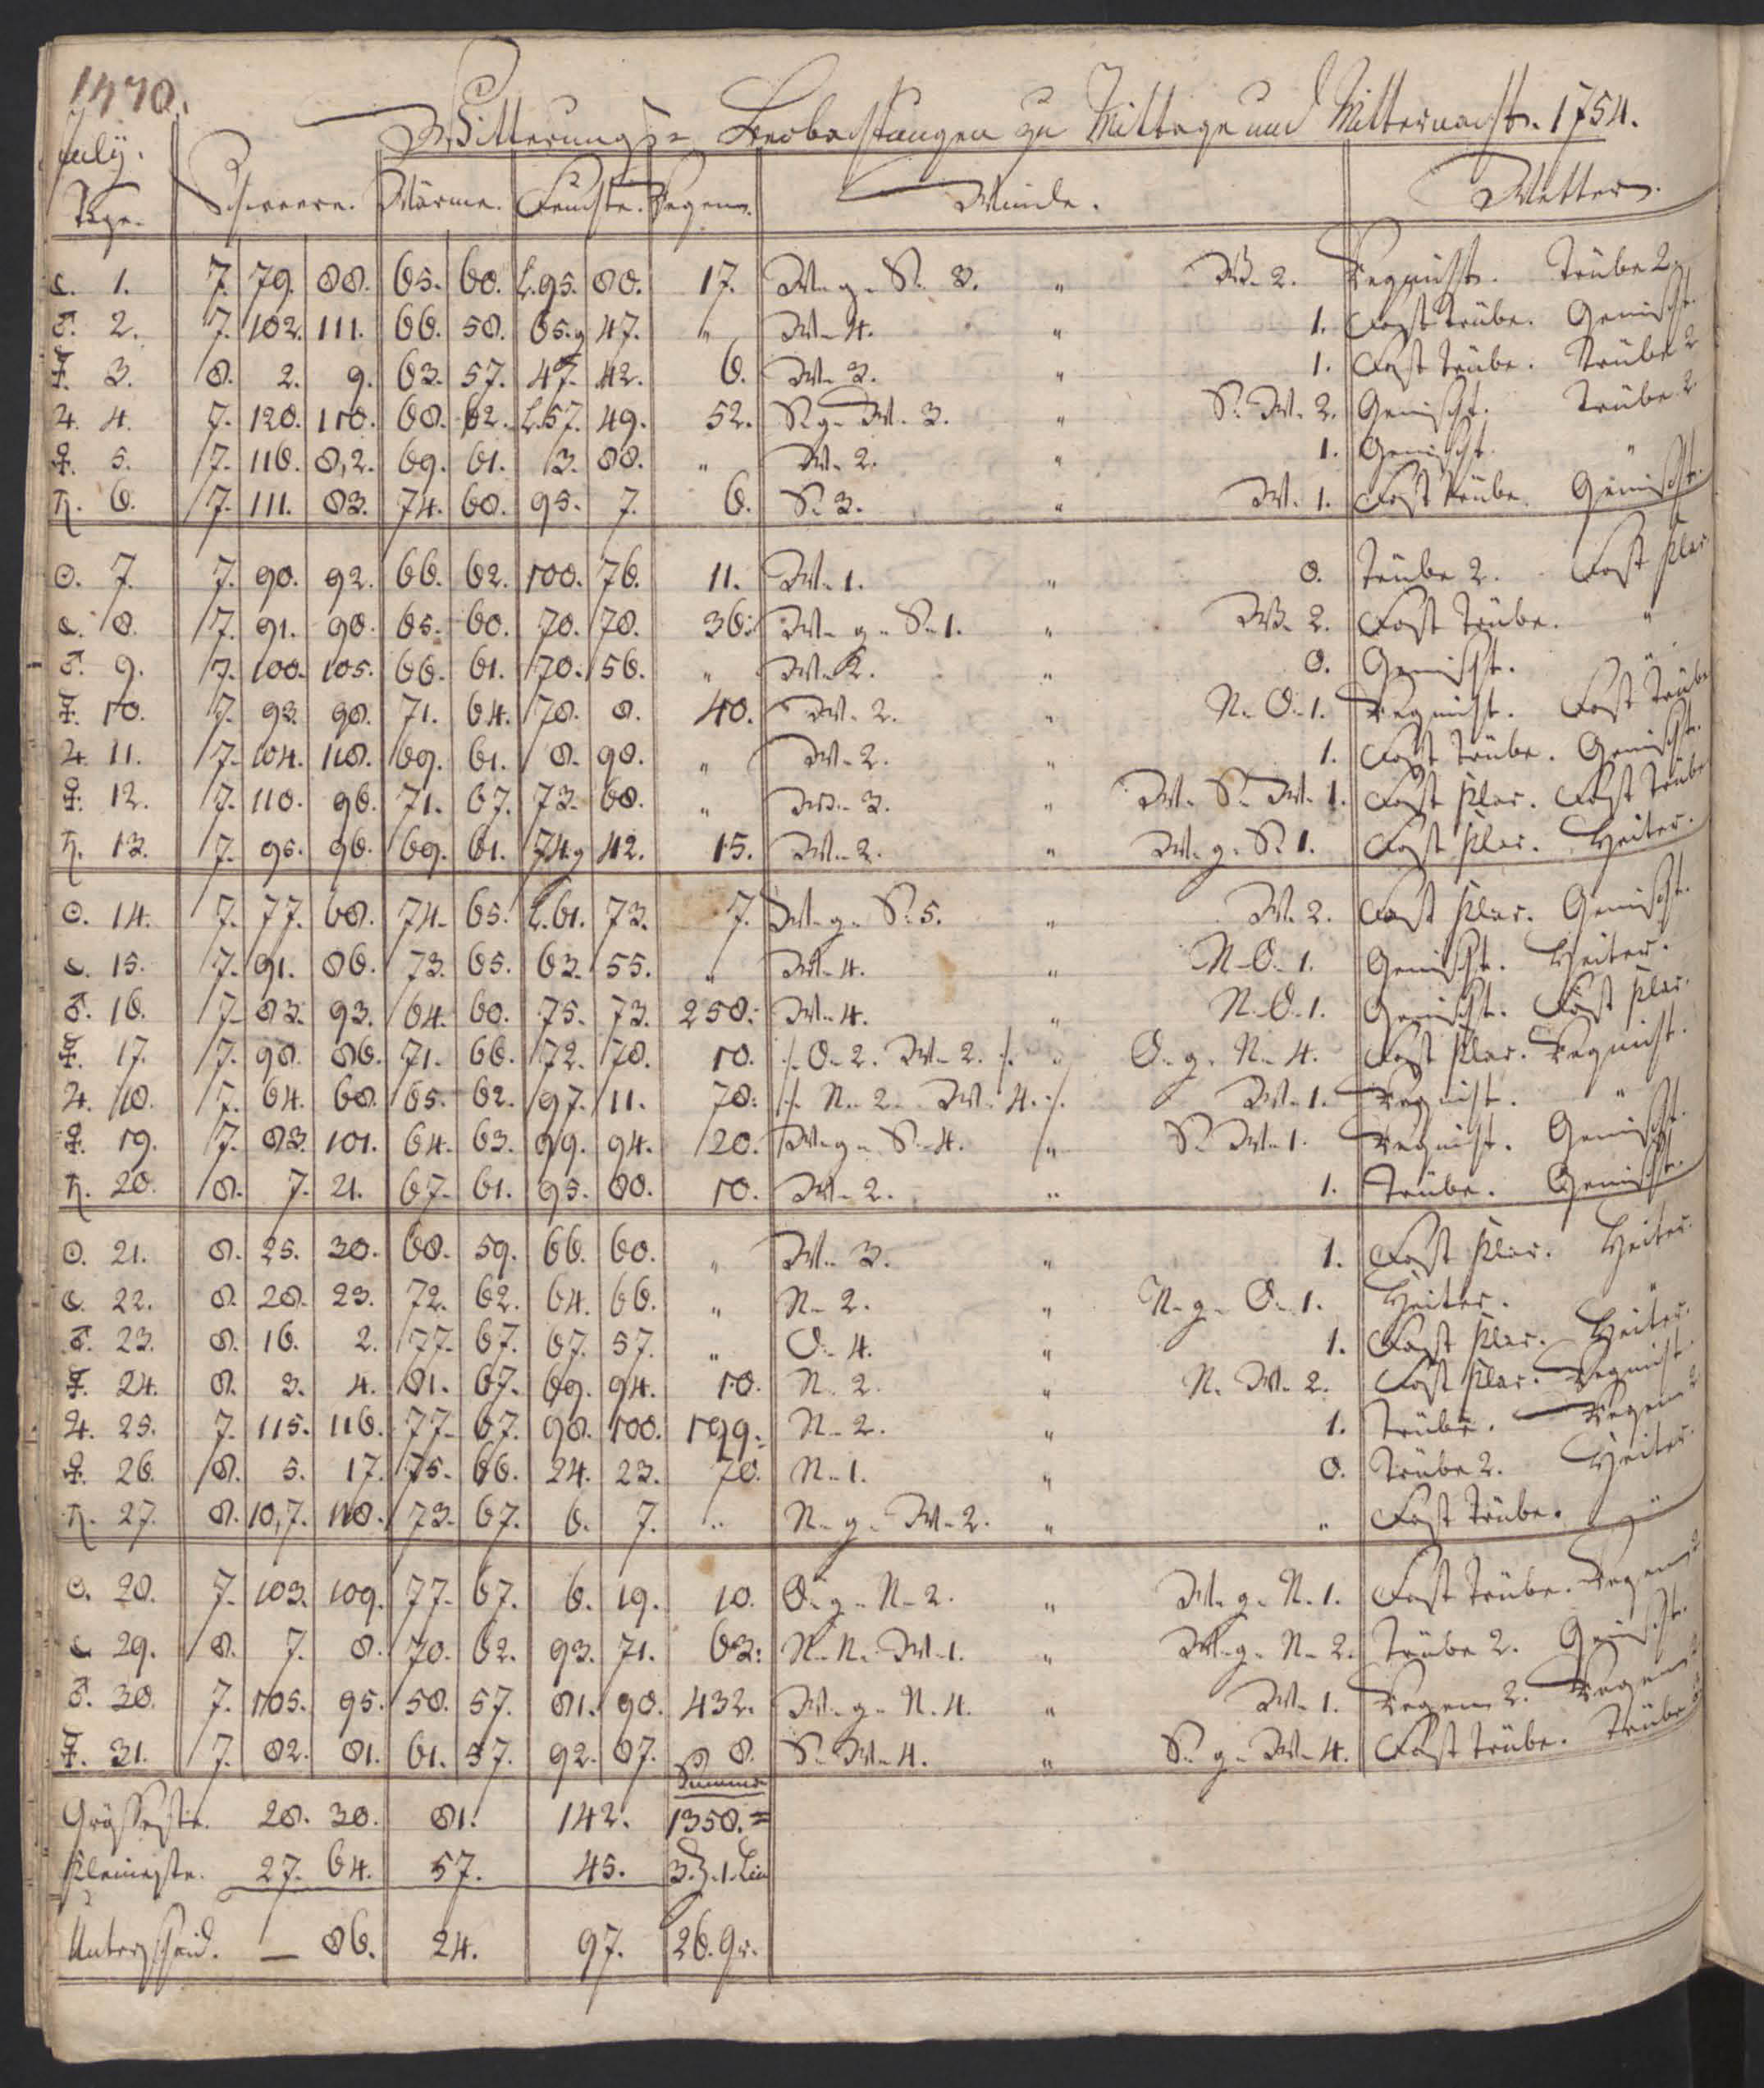 1470.
Witterungs-Beobachtungen zu Mittage und Mitternacht. 1754.
July.
Tage. Schweere. Wärme. Feuchte. Regen. Winde. Wetter.
☾. 1. 7. 79. 88. 65. 60. L.95. 80. 17. W. g. S. 3. " W. 2. Regnicht. Trübe 2.
♂. 2. 7. 102. 111. 66. 58. 65.9 47. " W. 4. " 1. Fast trübe. Gemischt.
☿. 3. 8. 2. 9. 63. 57. 47. 42. 6. W. 3. " 1. Fast trübe. Trübe 2
♃. 4. 7. 120. 110. 68. 62. L.57. 49. 52. S. g. W. 3. " S. W. 2. Gemischt. Trübe 2
♀. 5. 7. 116. 8,2. 69. 61. 3. 88. " W. 2. " 1. Gemischt. "
♄. 6. 7. 111. 83. 74. 60. 95. 7. 6. S. 3. " W. 1. Fast trübe. Gemischt.
☉. 7. 7. 90. 92. 66. 62. 100. 76. 11. W. 1. " 0. Trübe 2. Fast klar.
☾. 8. 7. 91. 98. 65. 60. 70. 78. 36: W. g. S. 1. " W. 2. Fast trübe. "
♂. 9. 7. 100. 105. 66. 61. 70. 56. " W. 2. " 0. Gemischt. "
☿. 10. 7. 93. 98. 71. 64. 78. 8. 40. W. 2. " N. O. 1. Regnicht. Fast trübe
♃. 11. 7. 104. 118. 69. 61. 8. 98. " W. 2. " 1. Fast trübe. Gemischt.
♀. 12. 7. 110. 96. 71. 67. 73. 68. " W. 3. " W. S. W. 1. Fast klar. Fast trübe
♄. 13. 7. 95. 96. 69. 61. 74.9 42. 15. W. 2. " W. g. S. 1. Fast klar. Heiter.
☉. 14. 7. 77. 68. 74. 65. L.61. 73. 7. W. g. S. 5. " W. 2. Fast klar. Gemischt.
☾. 15. 7. 91. 86. 73. 65. 63. 55. " W. 4. " N. O. 1. Gemischt. Heiter.
♂. 16. 7. 83. 93. 64. 60. 75. 73. 258: W. 4. " N. O. 1. Gemischt. Fast klar.
☿. 17. 7. 98. 86. 71. 66. 72. 78. 10. /. O. 2. W. 2. /. " O. g. N. 4. Fast klar. Regnicht.
♃. 18. 7. 64. 68. 65. 62. 97. 11. 78: /. N. 2. W. 4. /. W. 1. Regnicht. "
♀. 19. 7. 83. 101. 64. 63. 99. 94. 120. W. g. S. 4. " S. W. 1. Regnicht. Gemischt.
♄. 20. 8. 7. 21. 67. 61. 95. 80. 10. W. 2. " 1. Trübe. Gemischt.
☉. 21. 8. 25. 30. 68. 59. 66. 60. " W. 3. " 1. Fast klar. Heiter.
☾. 22. 8. 28. 23. 72. 62. 64. 66. " N. 2. " N. g. O. 1. Heiter. "
♂. 23. 8. 16. 2. 77. 67. 67. 57. " O. 4. " 1. Fast klar. Heiter.
☿. 24. 8. 3. 4. 81. 67. 69. 94. 18. N. 2. " N. W. 2. Fast klar. Regnicht.
♃. 25. 7. 115. 116. 77. 67. 98. 100. 199: N. 2. " 1. Trübe. Regen 2
♀. 26. 8. 5. 17. 75. 66. 24. 23. 70. N. 1. " 0. Trübe 2. Heiter.
♄. 27. 8. 10,7. 118. 73. 67. 6. 7. " N. g. W. 2. " " Fast trübe. "
☉. 28. 7. 103. 109. 77. 67. 6. 19. 10. O. g. N. 2. " W. g. N. 1. Fast trübe. Regen 2
☾. 29. 8. 7. 8. 70. 62. 93. 71. 63: N. N. W. 1. " W. g. N. 2. Trübe 2. Gemischt.
♂. 30. 7. 105. 95. 58. 57. 81. 90. 432. W. g. N. 4. " W. 1. Regen 2. Regen 2
☿. 31. 7. 82. 81. 61. 57. 92. 87. 8. S. W. 4. " S. g. W. 4. Fast trübe. Trübe 2
Summa
Grösseste. 28. 30. 81. 142. 1358. =
Kleineste. 27. 64. 57. 45. 3. Z. 1. Lin
Unterscheid. — 86. 24. 97. 26. gr.